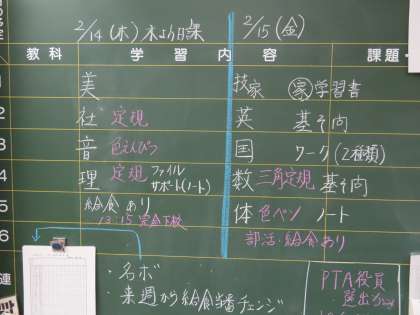 2/14(木) 木より日課
2/15(金)
教科 学習内容 課題・
1 美 技家 家学習書
2 社 定規 英 基その
3 音 色えんぴつ 国 ワーク(2種類)
4 理 定規 ファイル サポート(ノート) 数 三角定規 基その
5 給食あり 体 色ペン ノート
13:15 完全下校
6 部活・給食あり
連
・名ボ
・来週から給食当番チェンジ
PTA役員
選出